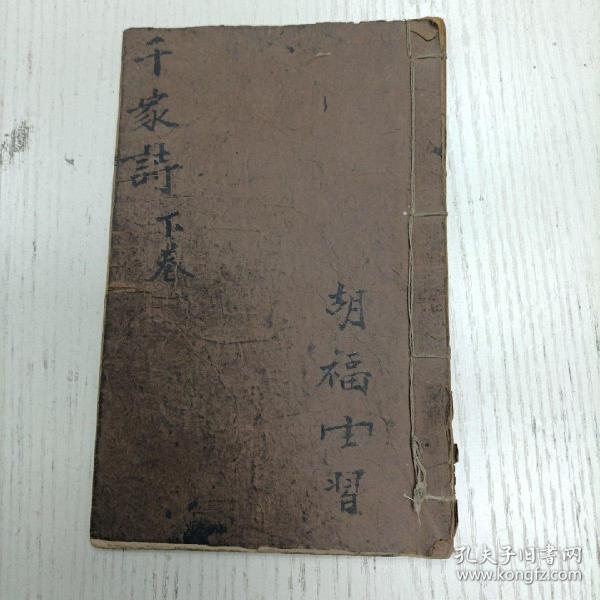 千家詩下卷
胡福㝉習
孔夫子旧书网
www.kongfz.com